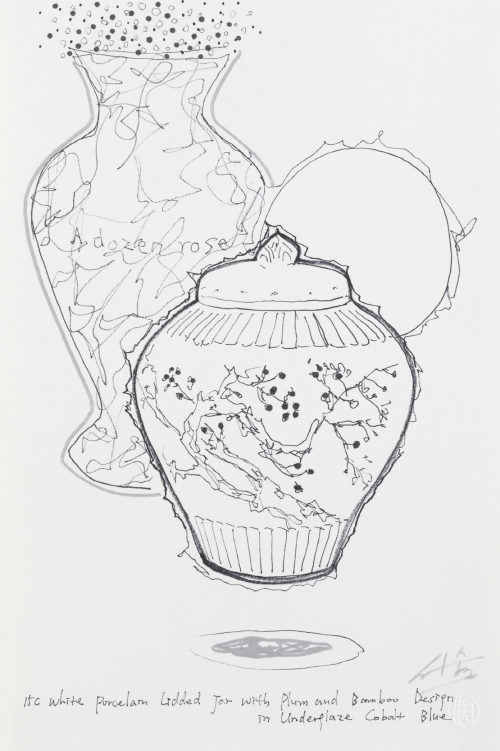 A dozen rose
15C White Porcelain Lidded Jar with Plum and Bamboo Design
in Underglaze Cobalt Blue